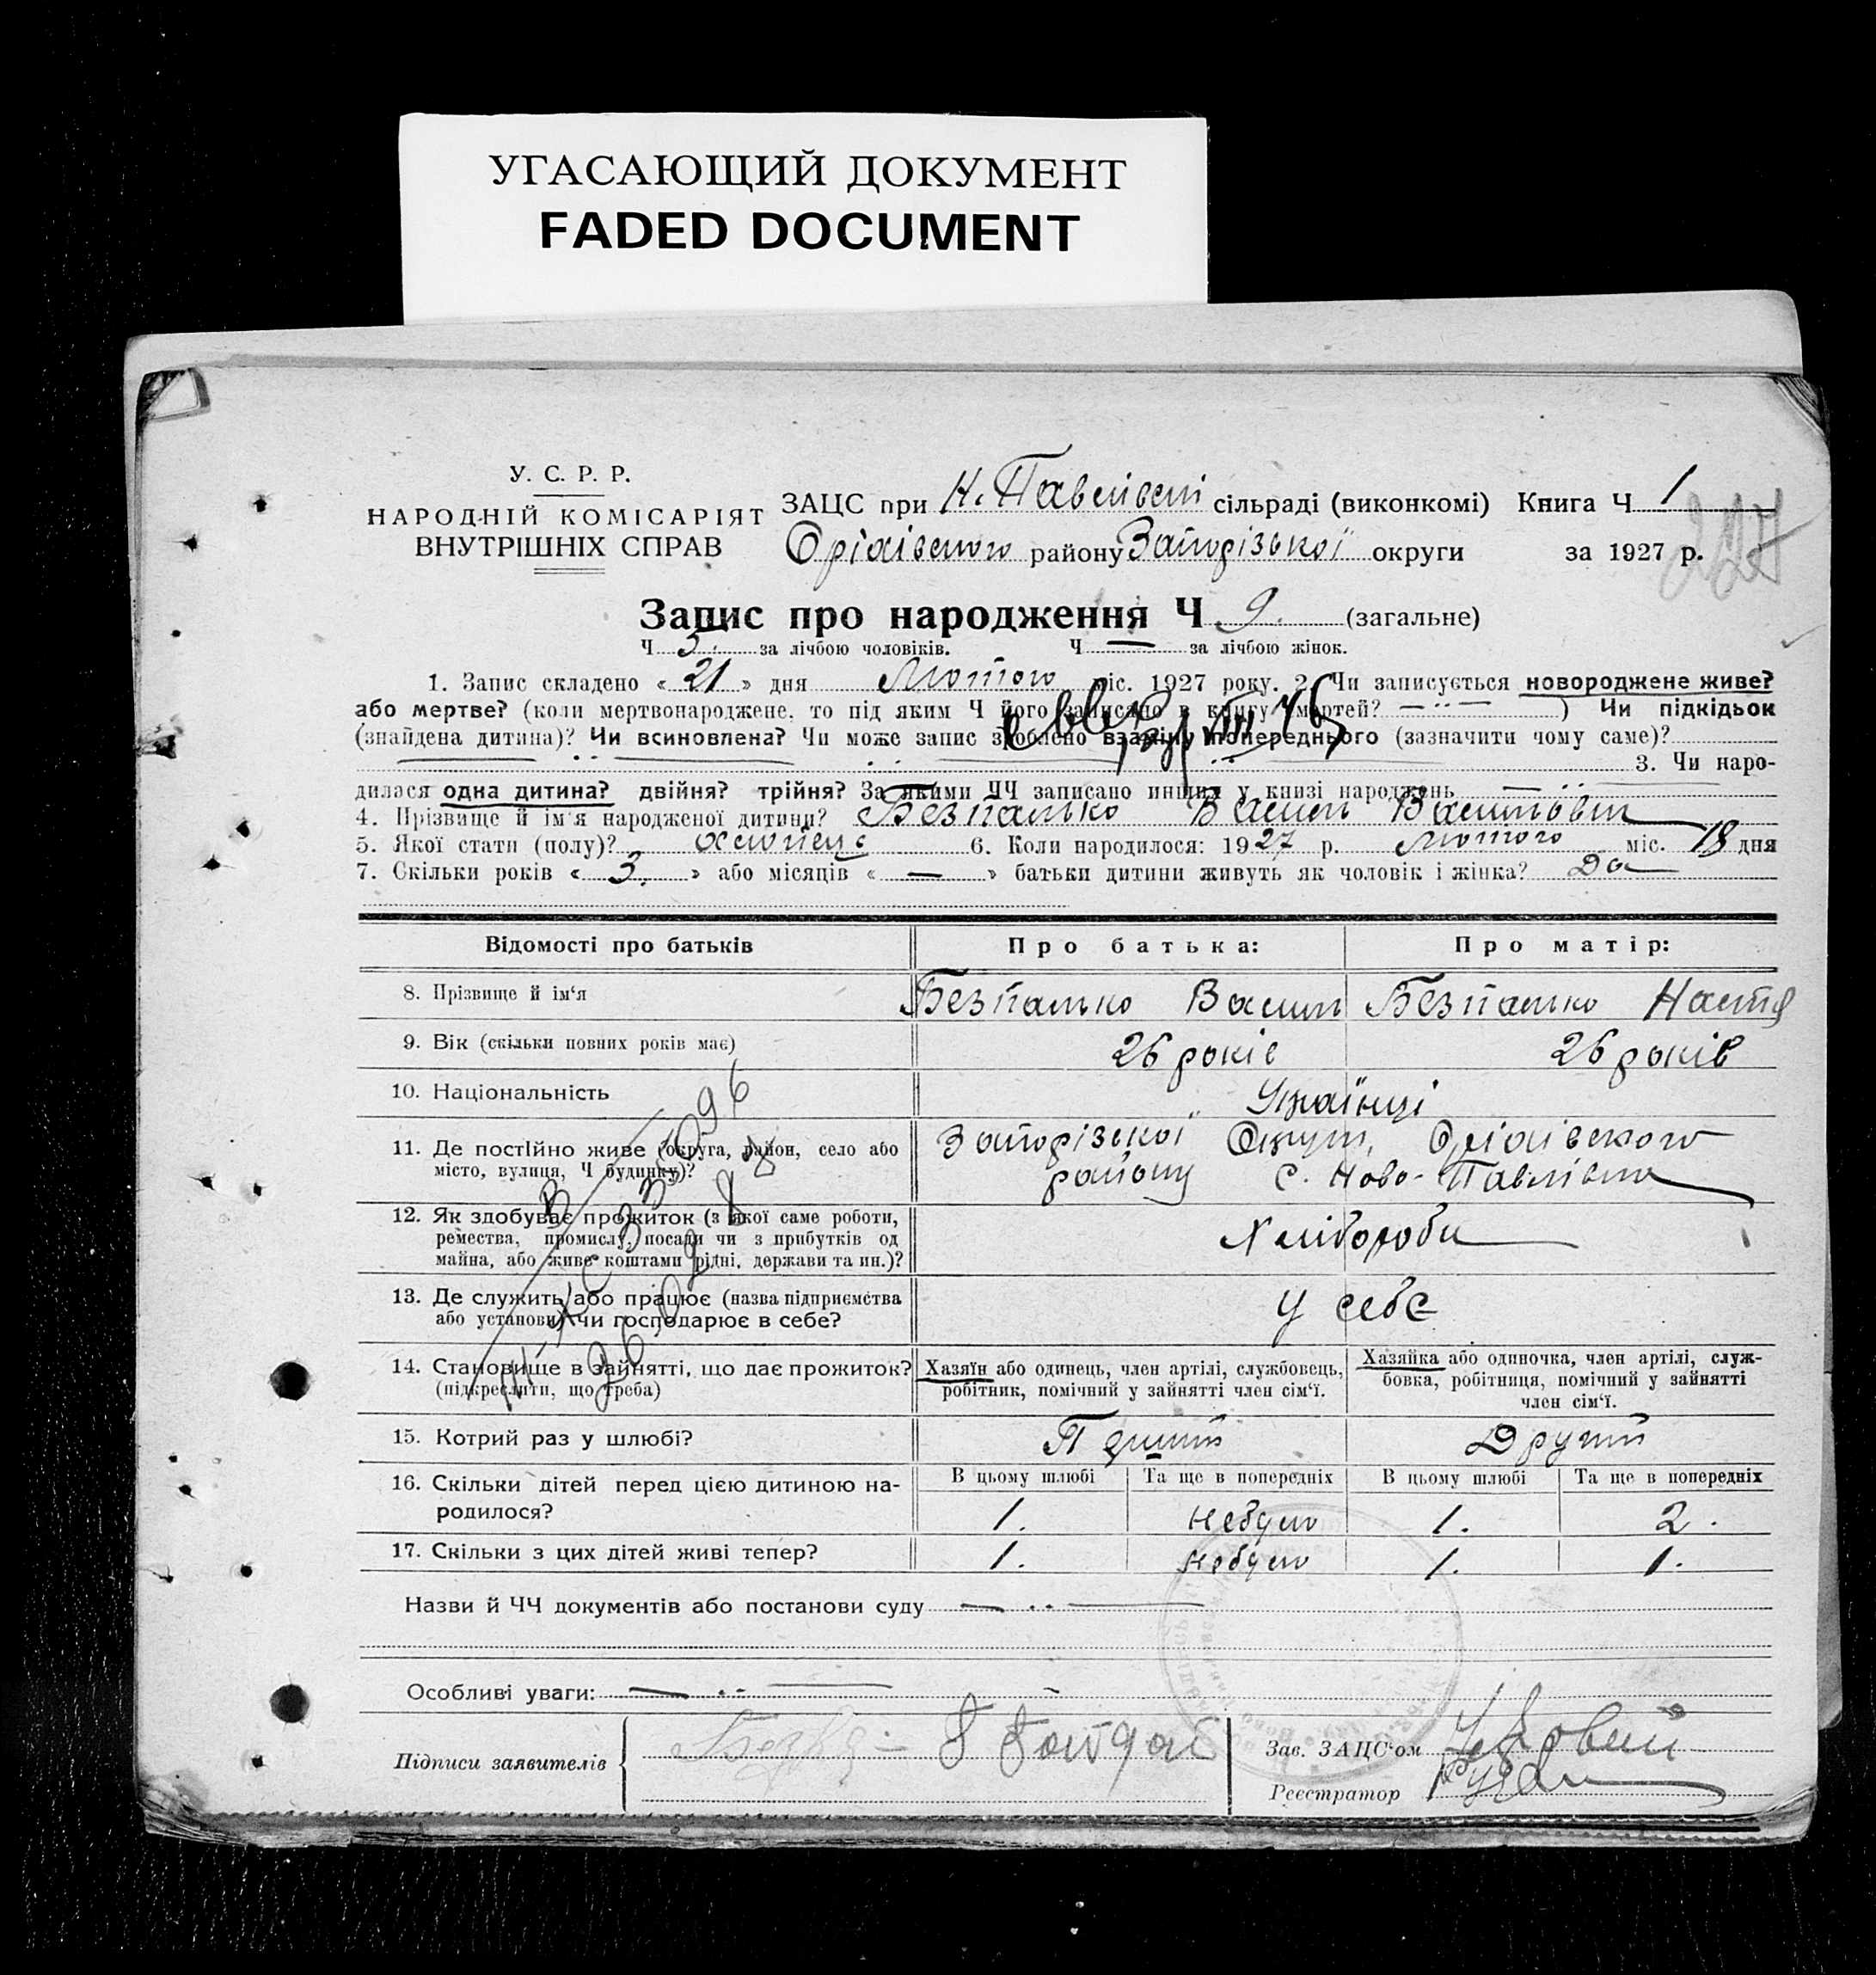 УГАСАЮЩИЙ ДОКУМЕНТ
FADED DOCUMENT
У. С. Р. Р.
НАРОДНІЙ КОМІСАРІЯТ
ВНУТРІШНІХ СПРАВ
ЗАЦС при Н. Павлівскі сільраді (виконкомі) Книга Ч 1
Оріхівського району Запорізької округи за 1927 р.
227
Запис про народження Ч 9. (загальне)
Ч 5. за лічбою чоловіків. Ч — за лічбою жінок.
1. Запис складено « 21 » дня Лютого міс. 1927 року. 2. Чи записується новороджене живе?
або мертве? (коли мертвонароджене, то під яким Ч його записано в книгу смертей? — ·· — ) Чи підкідьок
(знайдена дитина)? Чи всиновлена? Чи може запис зроблено взаміну попереднього (зазначити чому саме)?
3. Чи наро-
дилася одна дитина? двійня? трійня? За якими ЧЧ записано инших у книзі народжень
4. Прізвище й ім'я народженої дитини? Безпалько Василь Васильович
5. Якої стати (полу)? хлопець 6. Коли народилося: 1927 р. лютого міс. 18 дня
7. Скільки років « 3. » або місяців « — » батьки дитини живуть як чоловік і жінка? Да
Відомості про батьків Про батька: Про матір:
8. Прізвище й ім'я Безпалько Василь Безпалько Настя
9. Вік (скільки повних років має) 26 років 26 років
10. Національність Українці
11. Де постійно живе (округа, район, село або місто, вулиця, Ч будинку)? Запорізької Округи, Оріхівского
району с. Ново-Павлівка
12. Як здобуває прожиток (з якої саме роботи,
ремества, промислу, посади чи з прибутків од
майна, або живе коштами рідні, держави та ин.)? Хлібороби
13. Де служить або працює (назва підприємства
або установи) чи господарює в себе? У себе
14. Становище в зайнятті, що дає прожиток?
(підкреслити, що треба)
Хазяїн або одинець, член артілі, службовець,
робітник, помічний у зайнятті член сім'ї.
Хазяйка або одиночка, член артілі, служ-
бовка, робітниця, помічний у зайнятті
член сім'ї.
15. Котрий раз у шлюбі? Перший Другий
16. Скільки дітей перед цією дитиною на-
родилося?
В цьому шлюбі Та ще в попередніх В цьому шлюбі Та ще в попередніх
1. небуло 1. 2.
17. Скільки з цих дітей живі тепер? 1. небуло 1. 1.
Назви й ЧЧ документів або постанови суду — ·· —
Особливі уваги: — ·· —
Підписи заявителів
Зав. ЗАЦС'ом
Реєстратор